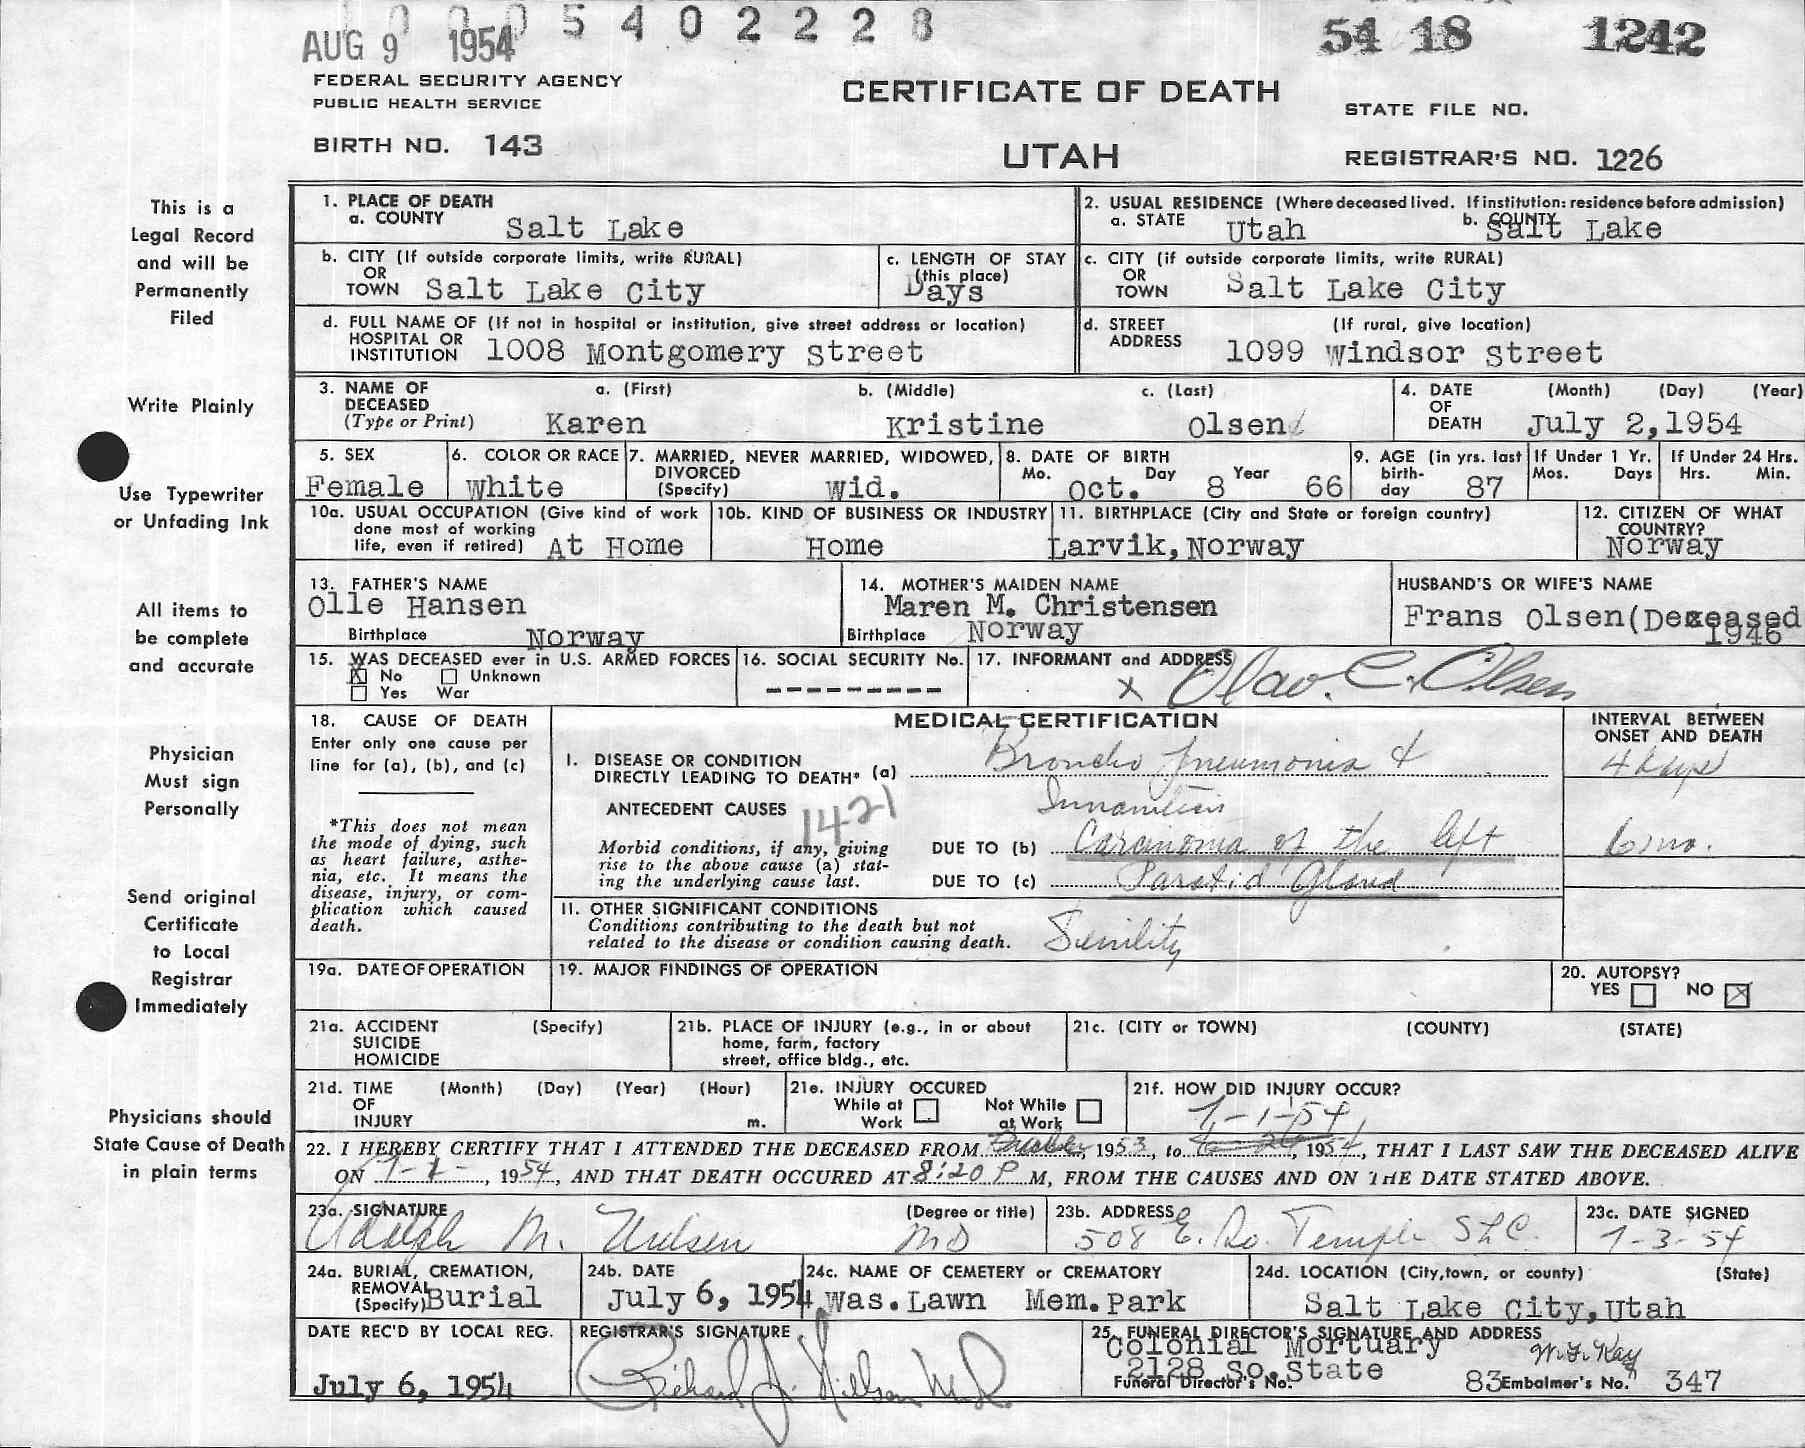 0 0 0 5 4 0 2 2 2 8
AUG 9 1954
54 18 1242
FEDERAL SECURITY AGENCY
PUBLIC HEALTH SERVICE
CERTIFICATE OF DEATH
STATE FILE NO.
BIRTH NO. 143
UTAH
REGISTRAR'S NO. 1226
This is a
Legal Record
and will be
Permanently
Filed
Write Plainly
Use Typewriter
or Unfading Ink
All items to
be complete
and accurate
Physician
Must sign
Personally
Send original
Certificate
to Local
Registrar
Immediately
Physicians should
State Cause of Death
in plain terms
1. PLACE OF DEATH
a. COUNTY Salt Lake
2. USUAL RESIDENCE (Where deceased lived. If institution: residence before admission)
a. STATE Utah b. COUNTY Salt Lake
b. CITY (If outside corporate limits, write RURAL)
OR
TOWN Salt Lake City
c. LENGTH OF STAY
(this place)
Days
c. CITY (if outside corporate limits, write RURAL)
OR
TOWN Salt Lake City
d. FULL NAME OF (If not in hospital or institution, give street address or location)
HOSPITAL OR
INSTITUTION 1008 Montgomery Street
d. STREET (If rural, give location)
ADDRESS 1099 Windsor Street
3. NAME OF a. (First) b. (Middle) c. (Last)
DECEASED
(Type or Print) Karen Kristine Olsen
4. DATE (Month) (Day) (Year)
OF
DEATH July 2, 1954
5. SEX
Female
6. COLOR OR RACE
White
7. MARRIED, NEVER MARRIED, WIDOWED,
DIVORCED
(Specify) Wid.
8. DATE OF BIRTH
Mo. Day Year
Oct. 8 66
9. AGE (in yrs. last
birth-
day 87
If Under 1 Yr.
Mos. Days
If Under 24 Hrs.
Hrs. Min.
10a. USUAL OCCUPATION (Give kind of work
done most of working
life, even if retired) At Home
10b. KIND OF BUSINESS OR INDUSTRY
Home
11. BIRTHPLACE (City and State or foreign country)
Larvik, Norway
12. CITIZEN OF WHAT
COUNTRY?
Norway
13. FATHER'S NAME
Olle Hansen
Birthplace Norway
14. MOTHER'S MAIDEN NAME
Maren M. Christensen
Birthplace Norway
HUSBAND'S OR WIFE'S NAME
Frans Olsen(Deceased
1946
15. WAS DECEASED ever in U.S. ARMED FORCES
X No Unknown
Yes War
16. SOCIAL SECURITY No.
----------
17. INFORMANT and ADDRESS
x Olav. C. Olsen
18. CAUSE OF DEATH
Enter only one cause per
line for (a), (b), and (c)
*This does not mean
the mode of dying, such
as heart failure, asthe-
nia, etc. It means the
disease, injury, or com-
plication which caused
death.
MEDICAL CERTIFICATION
INTERVAL BETWEEN
ONSET AND DEATH
I. DISEASE OR CONDITION
DIRECTLY LEADING TO DEATH* (a) Broncho Pneumonia & 4 days
ANTECEDENT CAUSES Innanition
1421
Morbid conditions, if any, giving
rise to the above cause (a) stat-
ing the underlying cause last.
DUE TO (b) Carcinoma of the left 6 mo.
DUE TO (c) Parotid Gland
II. OTHER SIGNIFICANT CONDITIONS
Conditions contributing to the death but not
related to the disease or condition causing death. Senility
19a. DATE OF OPERATION
19. MAJOR FINDINGS OF OPERATION
20. AUTOPSY?
YES NO X
21a. ACCIDENT (Specify)
SUICIDE
HOMICIDE
21b. PLACE OF INJURY (e.g., in or about
home, farm, factory
street, office bldg., etc.
21c. (CITY or TOWN) (COUNTY) (STATE)
21d. TIME (Month) (Day) (Year) (Hour)
OF
INJURY m.
21e. INJURY OCCURED
While at Work Not While at Work
21f. HOW DID INJURY OCCUR?
7-1-54
22. I HEREBY CERTIFY THAT I ATTENDED THE DECEASED FROM 1953, to 1954, THAT I LAST SAW THE DECEASED ALIVE
ON 7-1-, 1954, AND THAT DEATH OCCURED AT 8:20 P M, FROM THE CAUSES AND ON THE DATE STATED ABOVE.
23a. SIGNATURE (Degree or title)
Adolph M. Nielsen MD
23b. ADDRESS
508 E. So. Temple SLC.
23c. DATE SIGNED
7-3-54
24a. BURIAL, CREMATION,
REMOVAL
(Specify) Burial
24b. DATE
July 6, 1954
24c. NAME OF CEMETERY or CREMATORY
Was. Lawn Mem. Park
24d. LOCATION (City, town, or county) (State)
Salt Lake City, Utah
DATE REC'D BY LOCAL REG.
July 6, 1954
REGISTRAR'S SIGNATURE
25. FUNERAL DIRECTOR'S SIGNATURE AND ADDRESS
Colonial Mortuary
2128 So. State
Funeral Director's No. 83 Embalmer's No. 347